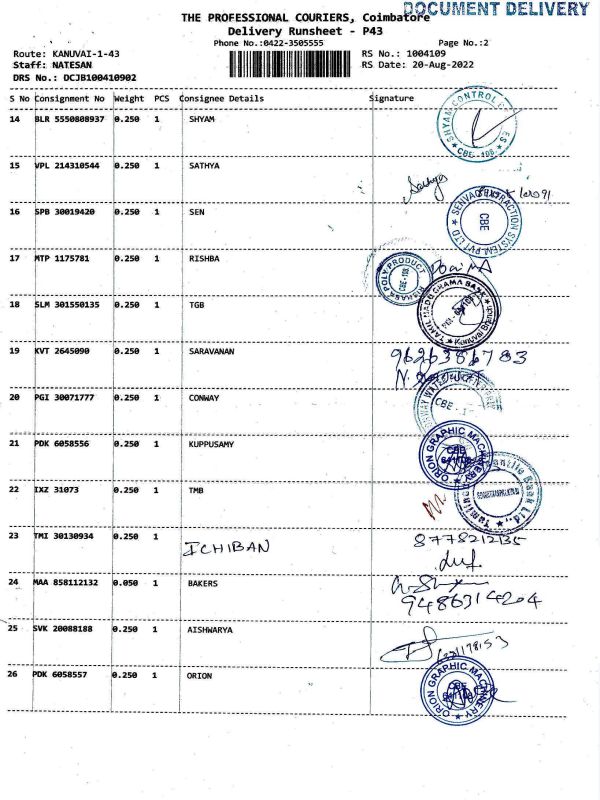 DOCUMENT DELIVERY
THE PROFESSIONAL COURIERS, Coimbatore
Delivery Runsheet - P43
Phone No.:0422-3505555 Page No.:2
Route: KANUVAI-1-43 RS No.: 1004109
Staff: NATESAN RS Date: 20-Aug-2022
DRS No.: DCJB100410902
S No Consignment No Weight PCS Consignee Details Signature
14 BLR 5550808937 0.250 1 SHYAM
SHYAM CONTROL CBE-108
15 VPL 214310544 0.250 1 SATHYA
Sathya
16 SPB 30019420 0.250 1 SEN
SENVAC EXTRACTION SYSTEM PVT LTD CBE
17 MTP 1175781 0.250 1 RISHBA
POLY PRODUCT CBE-108
18 SLM 301550135 0.250 1 TGB
19 KVT 2645090 0.250 1 SARAVANAN
9626386783
20 PGI 30071777 0.250 1 CONWAY
CBE - 1
21 PDK 6058556 0.250 1 KUPPUSAMY
ORION GRAPHIC MACHINERY CBE
22 IXZ 31073 0.250 1 TMB
Bank Ltd.,
23 TMI 30130934 0.250 1 ICHIBAN
8778212135
24 MAA 858112132 0.050 1 BAKERS
9486314204
25 SVK 20088188 0.250 1 AISHWARYA
26 PDK 6058557 0.250 1 ORION
ORION GRAPHIC MACHINERY CBE